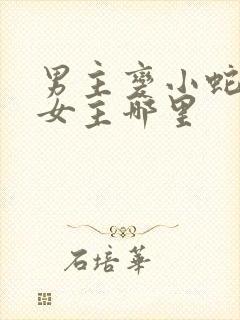 男主变小蛇
女主哪里
石培华